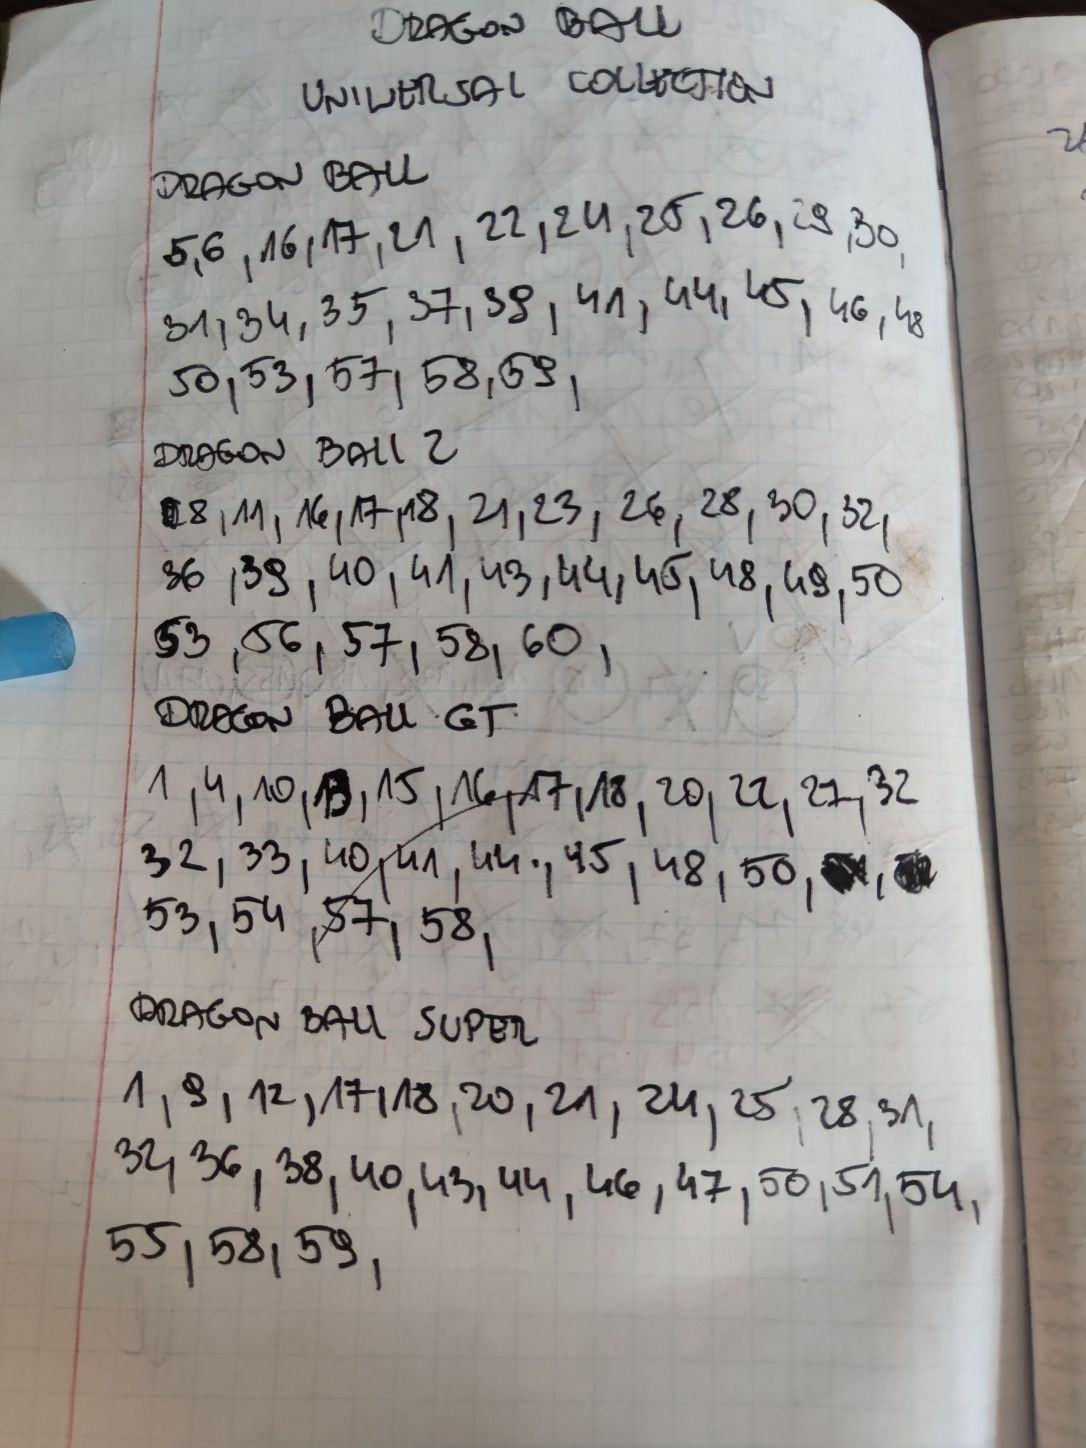 DRAGON BALL
UNIWERSAL COLLECTION
DRAGON BALL
5,6,16,17,21,22,24,25,26,29,30,
31,34,35,37,39,41,44,45,46,48
50,53,57,58,59,
DRAGON BALL Z
8,11,16,17,18,21,23,26,28,30,32,
36,39,40,41,43,44,45,48,49,50
53,56,57,58,60,
DRAGON BALL GT
1,4,10,13,15,16,17,18,20,22,27,32
32,33,40,41,44.,45,48,50,
53,54,57,58,
DRAGON BALL SUPER
1,9,12,17,18,20,21,24,25,28,31,
32,36,38,40,43,44,46,47,50,51,54,
55,58,59,